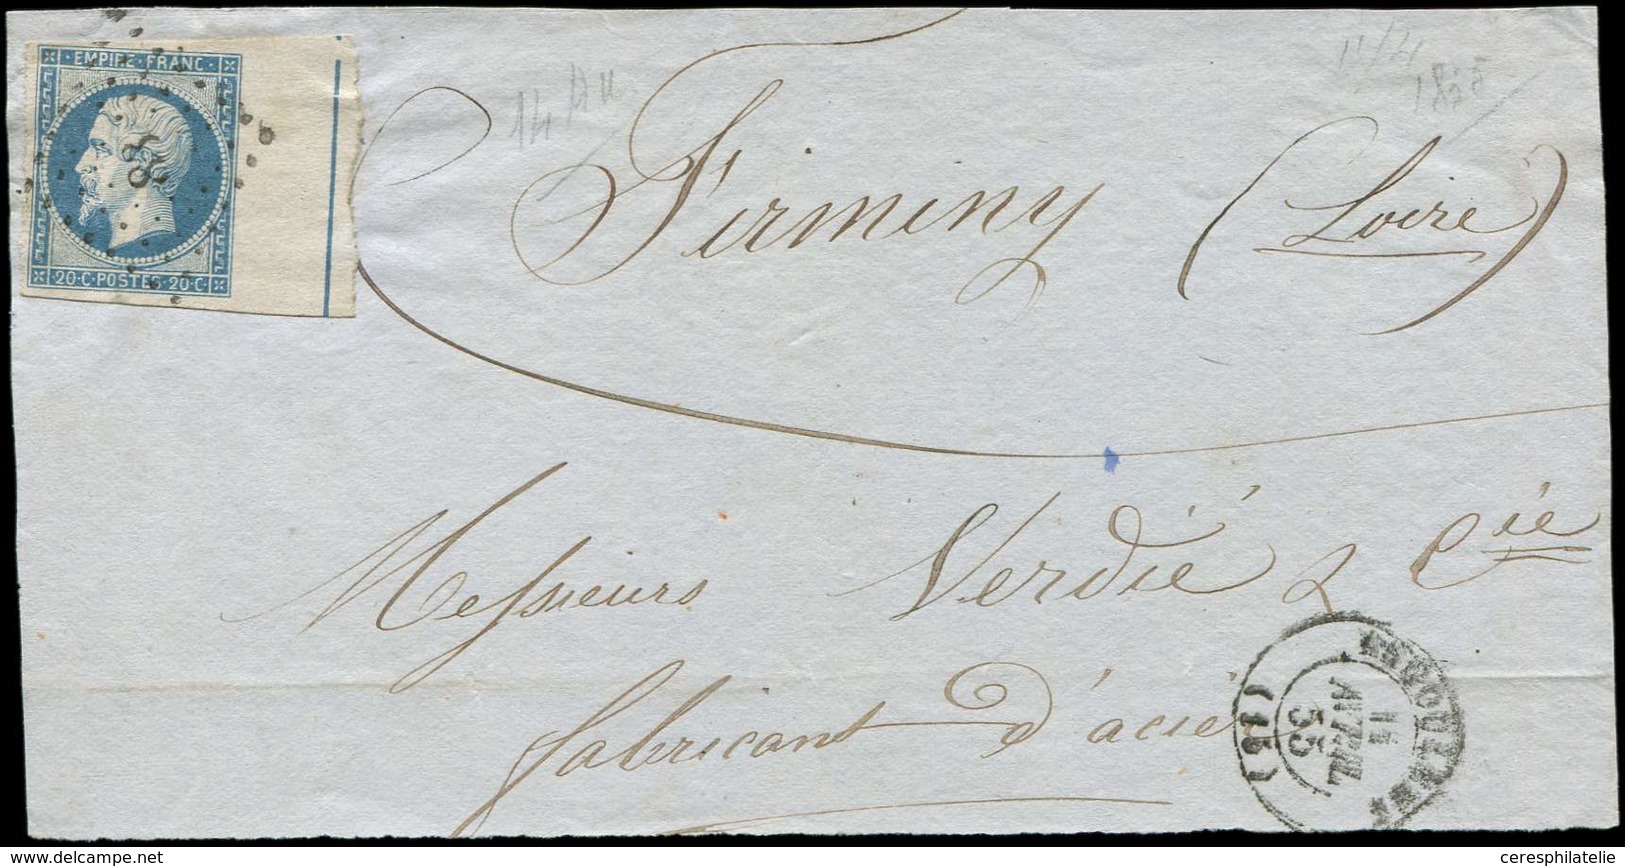 EMPIRE · FRANC ·
20 · C · POSTES · 20 · C ·
14
1855
Firminy (Loire)
Messieurs Verdié & Cie
fabricant d'acier
ANGOULEME
AVRIL
55
(15)
www.delcampe.net
ceresphilatelie